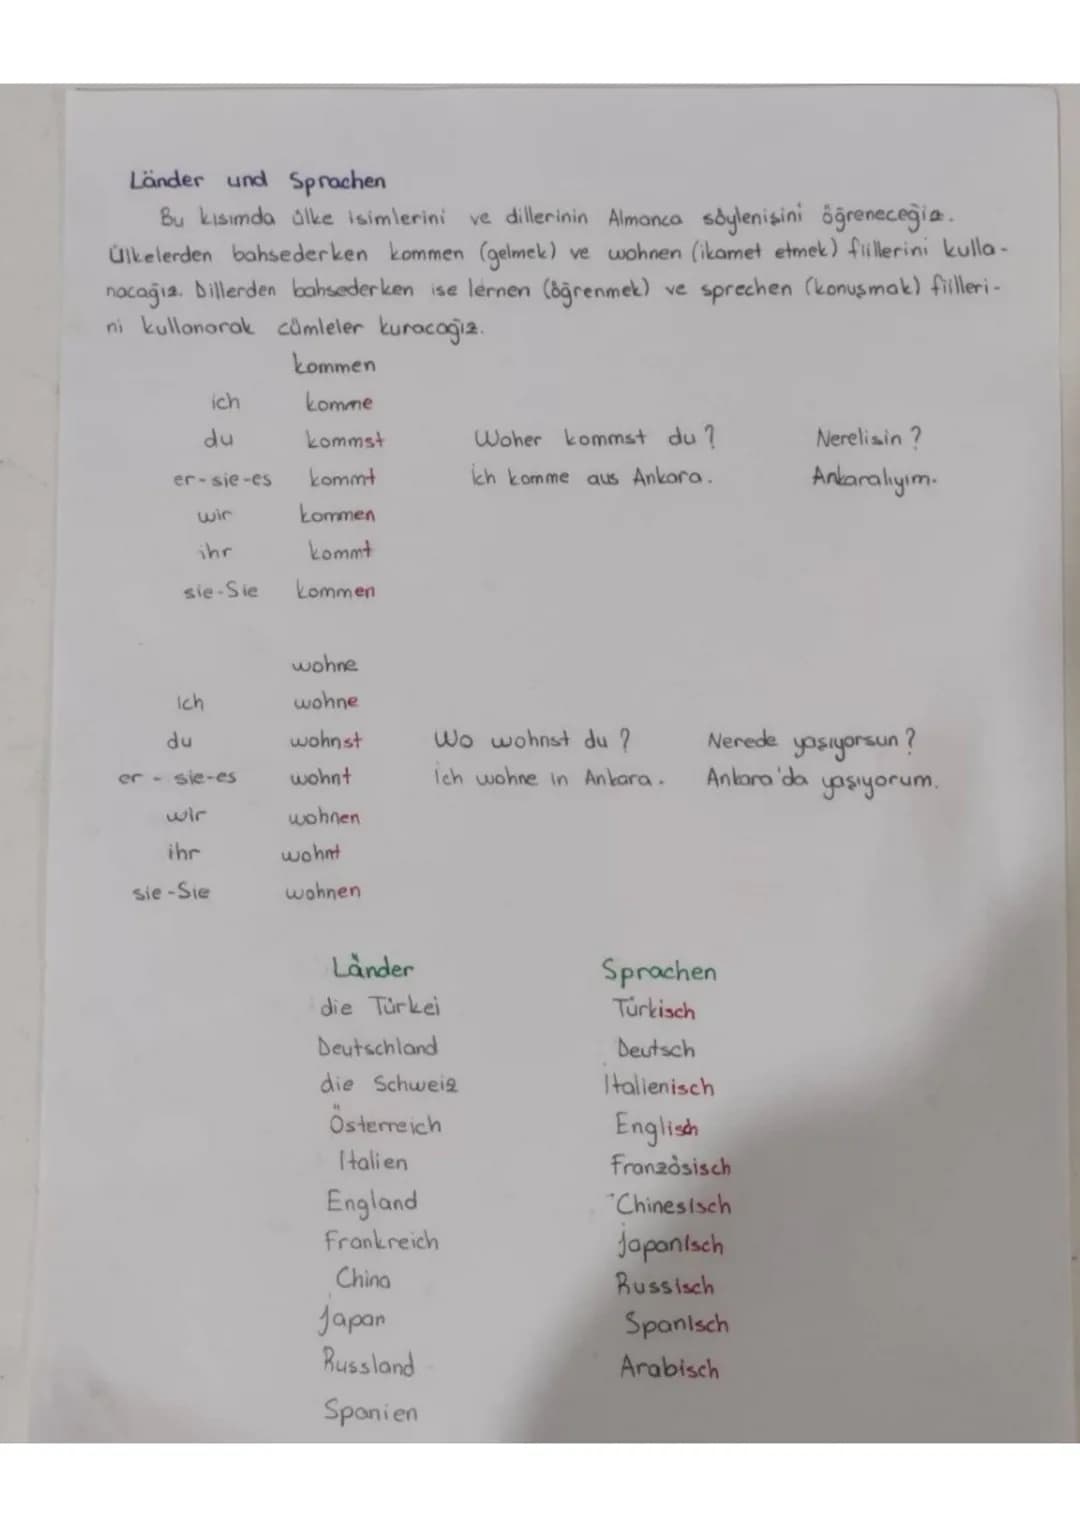 Länder und Sprachen
Bu kısımda ülke isimlerini ve dillerinin Almanca söylenişini öğreneceğiz.
Ülkelerden bahsederken kommen (gelmek) ve wohnen (ikamet etmek) fiillerini kulla-
nacağız. Dillerden bahsederken ise lernen (öğrenmek) ve sprechen (konuşmak) fiilleri-
ni kullanarak cümleler kuracağız.
kommen
ich komme
du kommst Woher kommst du? Nerelisin?
er-sie-es kommt ich komme aus Ankara. Ankaralıyım.
wir kommen
ihr kommt
sie-Sie kommen
wohne
ich wohne
du wohnst Wo wohnst du? Nerede yaşıyorsun?
er - sie-es wohnt ich wohne in Ankara. Ankara'da yaşıyorum.
wir wohnen
ihr wohnt
sie-Sie wohnen
Länder Sprachen
die Türkei Türkisch
Deutschland Deutsch
die Schweiz Italienisch
Österreich Englisch
Italien Französisch
England Chinesisch
Frankreich Japanisch
China Russisch
Japan Spanisch
Russland Arabisch
Spanien